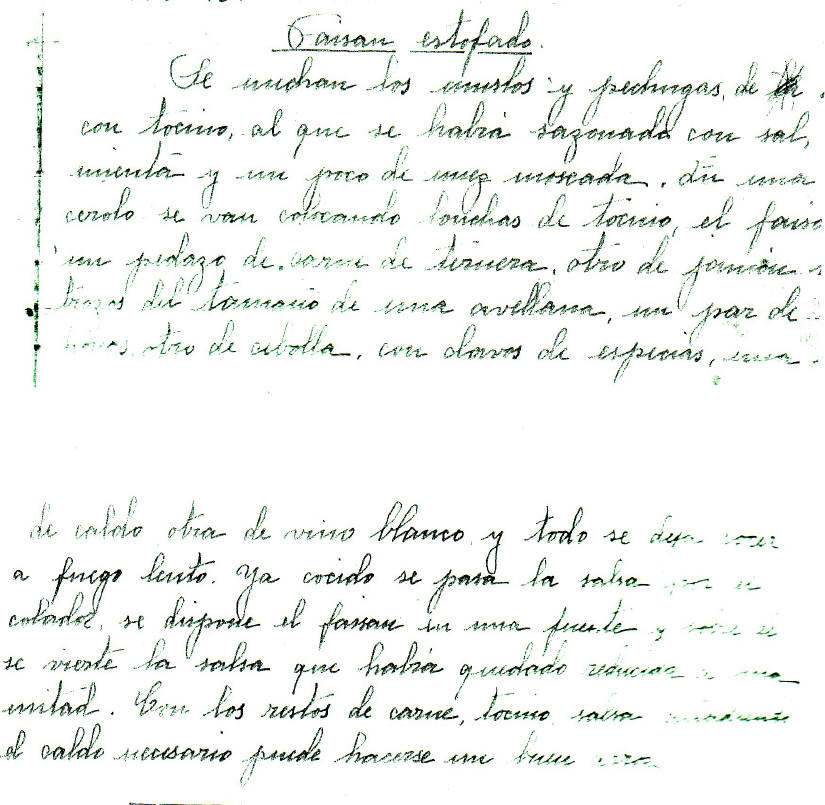 Faisan estofado.
Se mechan los muslos y pechugas, de
con tocino, al que se habrá sazonado con sal,
mienta y un poco de nuez moscada. En una
cerolo se van colocando lonchas de tocino, el faisa
un pedazo de carne de ternera, otro de jamón
trozos del tamaño de una avellana, un par de
otro de cebolla, con clavos de especias, una
de caldo otra de vino blanco y todo se deja cocer
a fuego lento. Ya cocido se pasa la salsa por el
colador, se dispone el faisan en una fuente y sobre él
se vierte la salsa que habrá quedado reducida a una
mitad. Con los restos de carne, tocino, salsa
el caldo necesario puede hacerse un buen